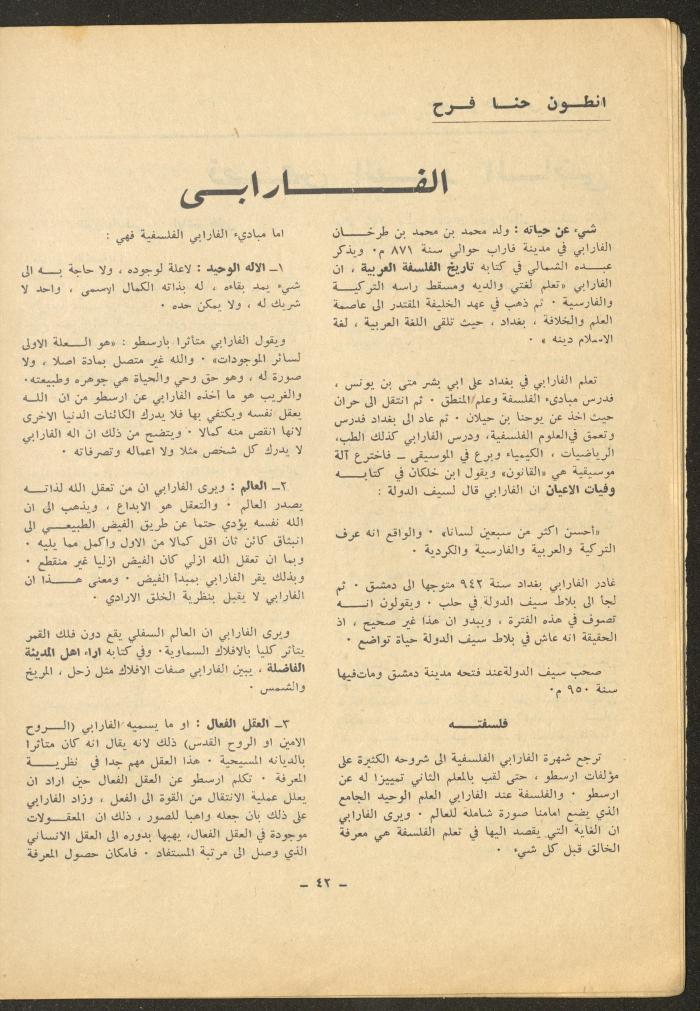 انطون حنا فرح
الفارابي
شيء عن حياته : ولد محمد بن محمد بن طرخان
الفارابي في مدينة فاراب حوالي سنة ٨٧١ م٠ ويذكر
عبده الشمالي في كتابه تاريخ الفلسفة العربية ، ان
الفارابي «تعلم لغتي والديه ومسقط راسه التركية
والفارسية ٠ ثم ذهب في عهد الخليفة المقتدر الى عاصمة
العلم والخلافة ، بغداد ، حيث تلقى اللغة العربية ، لغة
الاسلام دينه » ٠
تعلم الفارابي في بغداد على ابي بشر متى بن يونس ،
فدرس مبادىء الفلسفة وعلم المنطق ٠ ثم انتقل الى حران
حيث اخذ عن يوحنا بن حيلان ٠ ثم عاد الى بغداد فدرس
وتعمق في العلوم الفلسفية، ودرس الفارابي كذلك الطب،
الرياضيات ، الكيمياء وبرع في الموسيقى – فاخترع آلة
موسيقية هي «القانون» ويقول ابن خلكان في كتابه
وفيات الاعيان ان الفارابي قال لسيف الدولة :
«أحسن اكثر من سبعين لسانا» ٠ والواقع انه عرف
التركية والعربية والفارسية والكردية ٠
غادر الفارابي بغداد سنة ٩٤٢ متوجها الى دمشق ٠ ثم
لجأ الى بلاط سيف الدولة في حلب ٠ ويقولون انه
تصوف في هذه الفترة ، ويبدو ان هذا غير صحيح ، اذ
الحقيقة انه عاش في بلاط سيف الدولة حياة تواضع ٠
صحب سيف الدولة عند فتحه مدينة دمشق ومات فيها
سنة ٩٥٠ م٠
فلسفته
ترجع شهرة الفارابي الفلسفية الى شروحه الكثيرة على
مؤلفات ارسطو ، حتى لقب بالمعلم الثاني تمييزا له عن
ارسطو ٠ والفلسفة عند الفارابي العلم الوحيد الجامع
الذي يضع امامنا صورة شاملة للعالم ٠ ويرى الفارابي
ان الغاية التي يقصد اليها في تعلم الفلسفة هي معرفة
الخالق قبل كل شيء ٠
اما مباديء الفارابي الفلسفية فهي :
١– الاله الوحيد : لاعلة لوجوده ، ولا حاجة به الى
شيء يمد بقاءه ، له بذاته الكمال الاسمى ، واحد لا
شريك له ، ولا يمكن حده ٠
ويقول الفارابي متأثرا بارسطو : «هو العلة الاولى
لسائر الموجودات» ٠ والله غير متصل بمادة اصلا ، ولا
صورة له ، وهو حق وحي والحياة هي جوهره وطبيعته٠
والغريب هو ما أخذه الفارابي عن ارسطو من ان الله
يعقل نفسه ويكتفي بها فلا يدرك الكائنات الدنيا الاخرى
لانها انقص منه كمالا ٠ ويتضح من ذلك ان اله الفارابي
لا يدرك كل شخص مثلا ولا اعماله وتصرفاته ٠
٢– العالم : ويرى الفارابي ان من تعقل الله لذاته
يصدر العالم ٠ والتعقل هو الابداع ، ويذهب الى ان
الله نفسه يؤدي حتما عن طريق الفيض الطبيعي الى
انبثاق كائن ثان اقل كمالا من الاول واكمل مما يليه ٠
وبما ان تعقل الله ازلي كان الفيض ازليا غير منقطع ٠
وبذلك يقر الفارابي بمبدأ الفيض ٠ ومعنى هذا ان
الفارابي لا يقبل بنظرية الخلق الارادي ٠
ويرى الفارابي ان العالم السفلي يقع دون فلك القمر
يتأثر كليا بالافلاك السماوية٠ وفي كتابه اراء اهل المدينة
الفاضلة ، يبين الفارابي صفات الافلاك مثل زحل ، المريخ
والشمس ٠
٣– العقل الفعال : او ما يسميه الفارابي (الروح
الامين او الروح القدس) ذلك لانه يقال انه كان متأثرا
بالديانه المسيحية ٠ هذا العقل مهم جدا في نظرية
المعرفة ٠ تكلم ارسطو عن العقل الفعال حين اراد ان
يعلل عملية الانتقال من القوة الى الفعل ، وزاد الفارابي
على ذلك بان جعله واهبا للصور ، ذلك ان المعقولات
موجودة في العقل الفعال، يهبها بدوره الى العقل الانساني
الذي وصل الى مرتبة المستفاد ٠ فامكان حصول المعرفة
– ٤٢ –